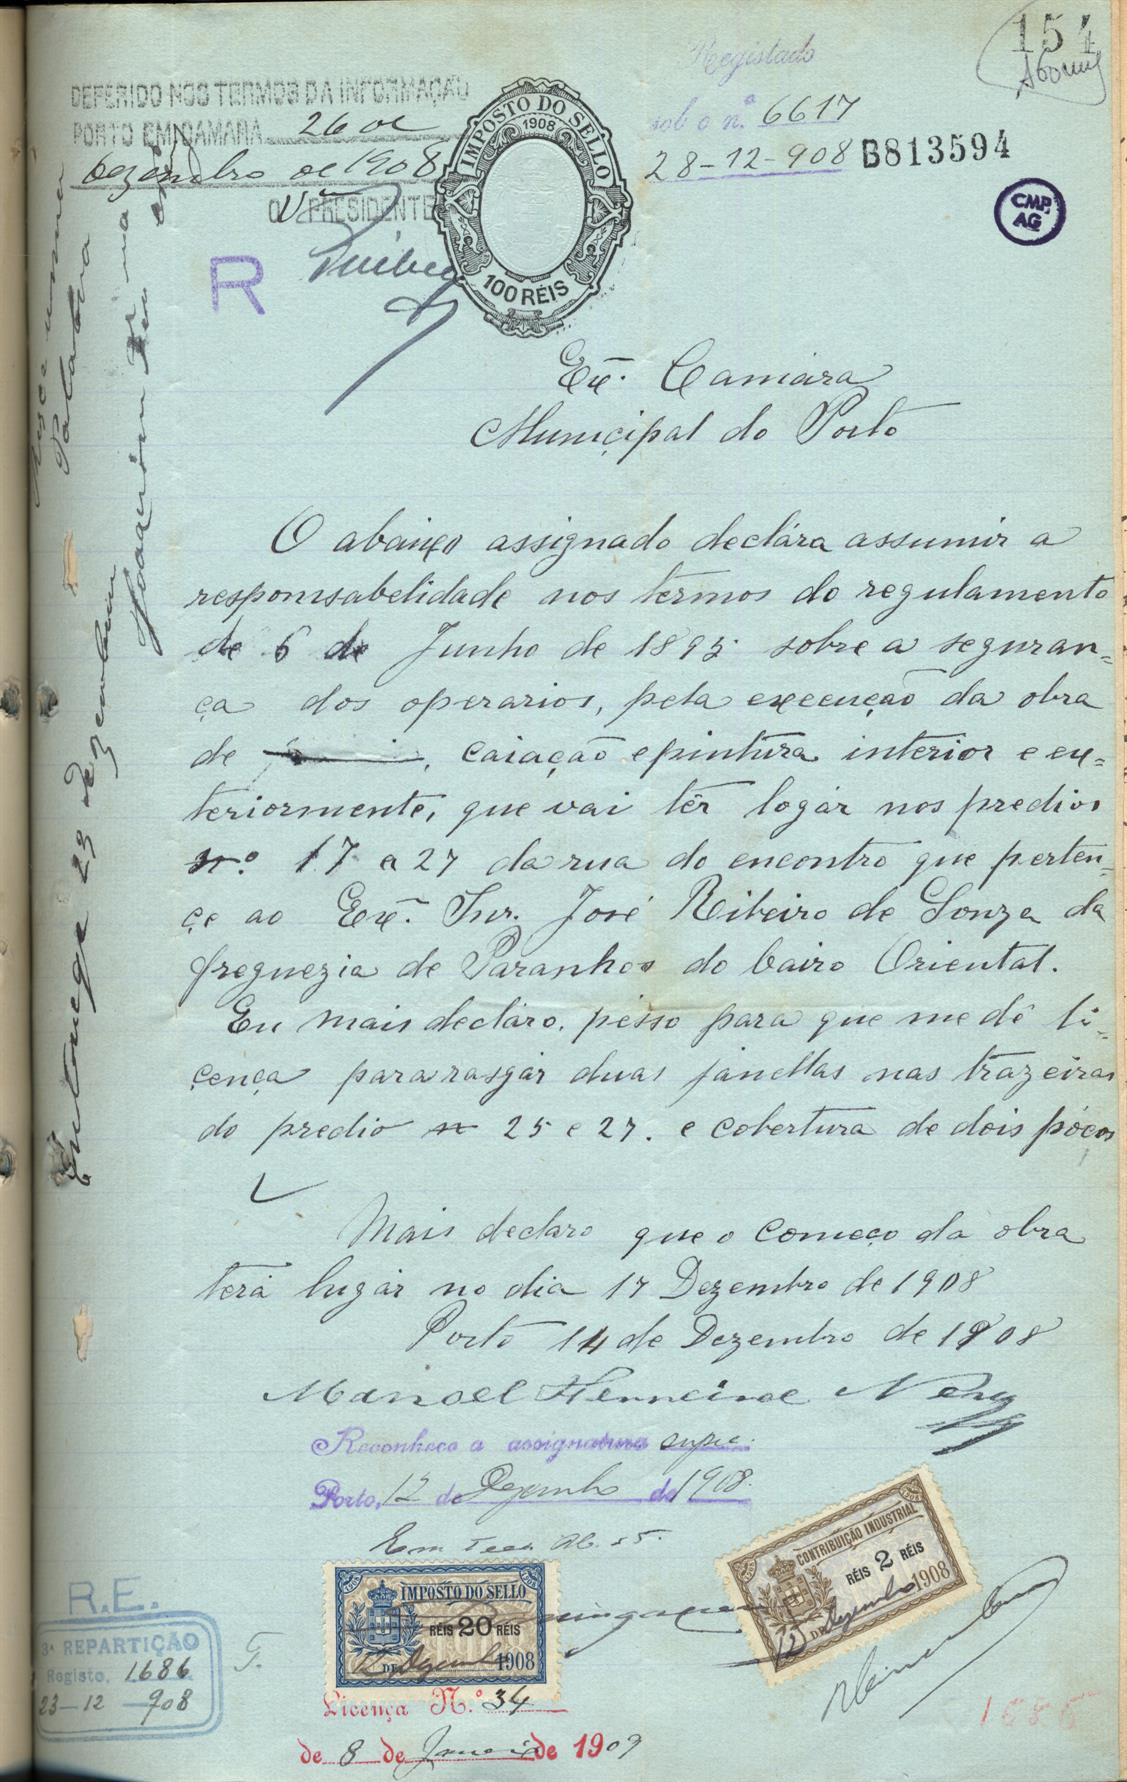 154
Registado
sob o n.º 6617
28-12-908 B813594
DEFERIDO NOS TERMOS DA INFORMAÇÃO
PORTO EM CAMARA 26 de
dezembro de 1908
O PRESIDENTE
IMPOSTO DO SELLO
1908
100 RÉIS
CMP.
AG
R
Exª. Camára
Municipal do Porto
O abaixo assignado declára assumir a
responsabelidade nos termos do regulamento
de 6 de Junho de 1895 sobre a seguran=
ça dos operarios, pela execução da obra
de caiação e pintura interior e ex=
teriormente, que vai têr logár nos predios
nº. 17 a 27 da rua do encontro que perten=
çe ao Exº. Snr. José Ribeiro de Souza da
freguezia de Paranhos do bairo Oriental.
Eu mais decláro. pésso para que me dê li=
çença para rasgár duas janellas nas trazeiras
do predio nº 25 e 27. e cobertura de dois póços
Mais declaro que o começo da obra
terá lugár no dia 17 Dezembro de 1908
Porto 14 de Dezembro de 1908
Manoel Ferreira Nery
Reconheço a assignatura supra.
Porto, 12 de Dezembro de 1908.
IMPOSTO DO SELLO
RÉIS 20 RÉIS
12 DE Dezembro 1908
CONTRIBUIÇÃO INDUSTRIAL
RÉIS 2 RÉIS
12 DE Dezembro 1908
R.E.
3ª REPARTIÇÃO
Registo, 1686
23-12-908
T.
Licença N.º 34
de 8 de Janeiro de 1909
1686
Entregue 23 dezembro